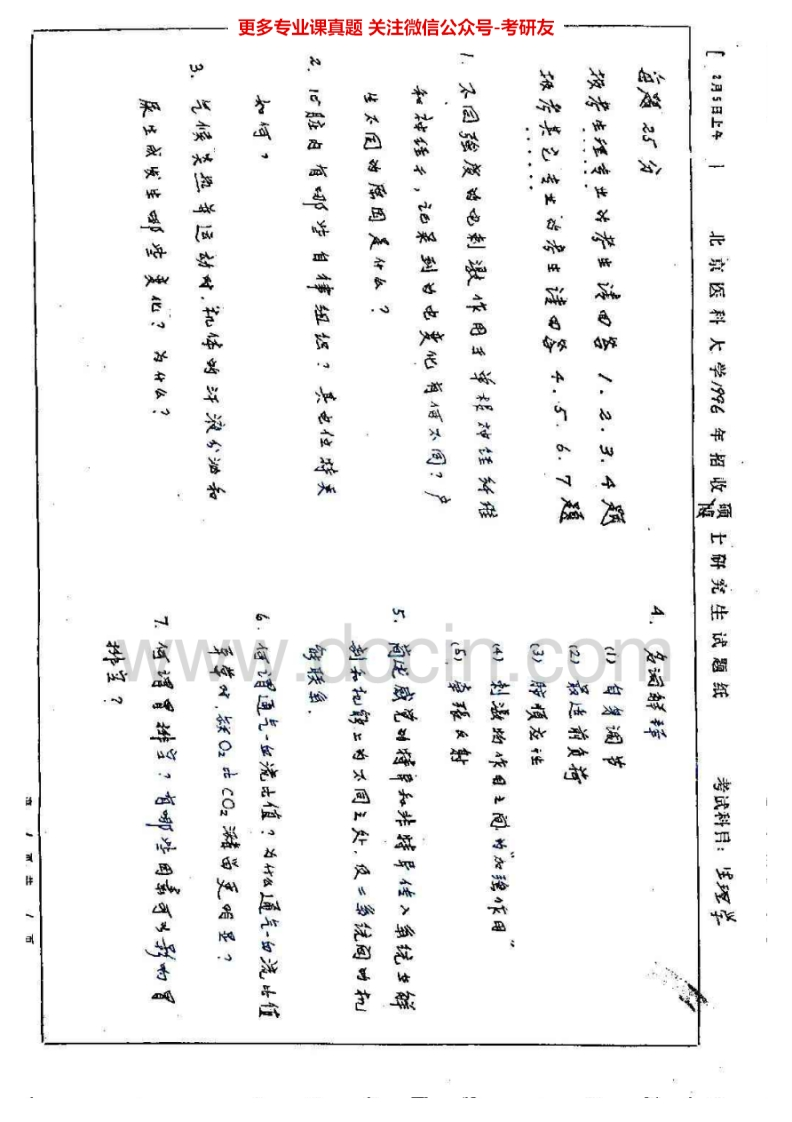 更多专业课真题 关注微信公众号-考研友
[ 2月5日上午 ]
北京医科大学1996年招收硕士研究生试题纸
博
考试科目：生理学
每题25分
报考生理专业的考生请回答1.2.3.4题
报考其它专业的考生请回答4.5.6.7题
1. 不同强度的电刺激作用于单根神经纤维
和神经干，记录到的电变化有何不同？产
生不同的原因是什么？
2. 心脏内有哪些自律组织？其电位特点
如何？
3. 气候炎热并运动时，机体的汗液分泌和
尿生成发生哪些变化？为什么？
4. 名词解释
(1) 自身调节
(2) 最适前负荷
(3) 肺顺应性
(4) 刺激物作用之间的"加强作用"
(5) 牵张反射
5. 简述感觉的特异和非特异传入系统在解
剖和机能上的不同之处，及二系统间的机
能联系.
6. 何谓通气-血流比值？为什么通气-血流比值
异常时，缺O₂比CO₂潴留更明显？
7. 何谓胃排空？有哪些因素可以影响胃
排空？
www.docin.com